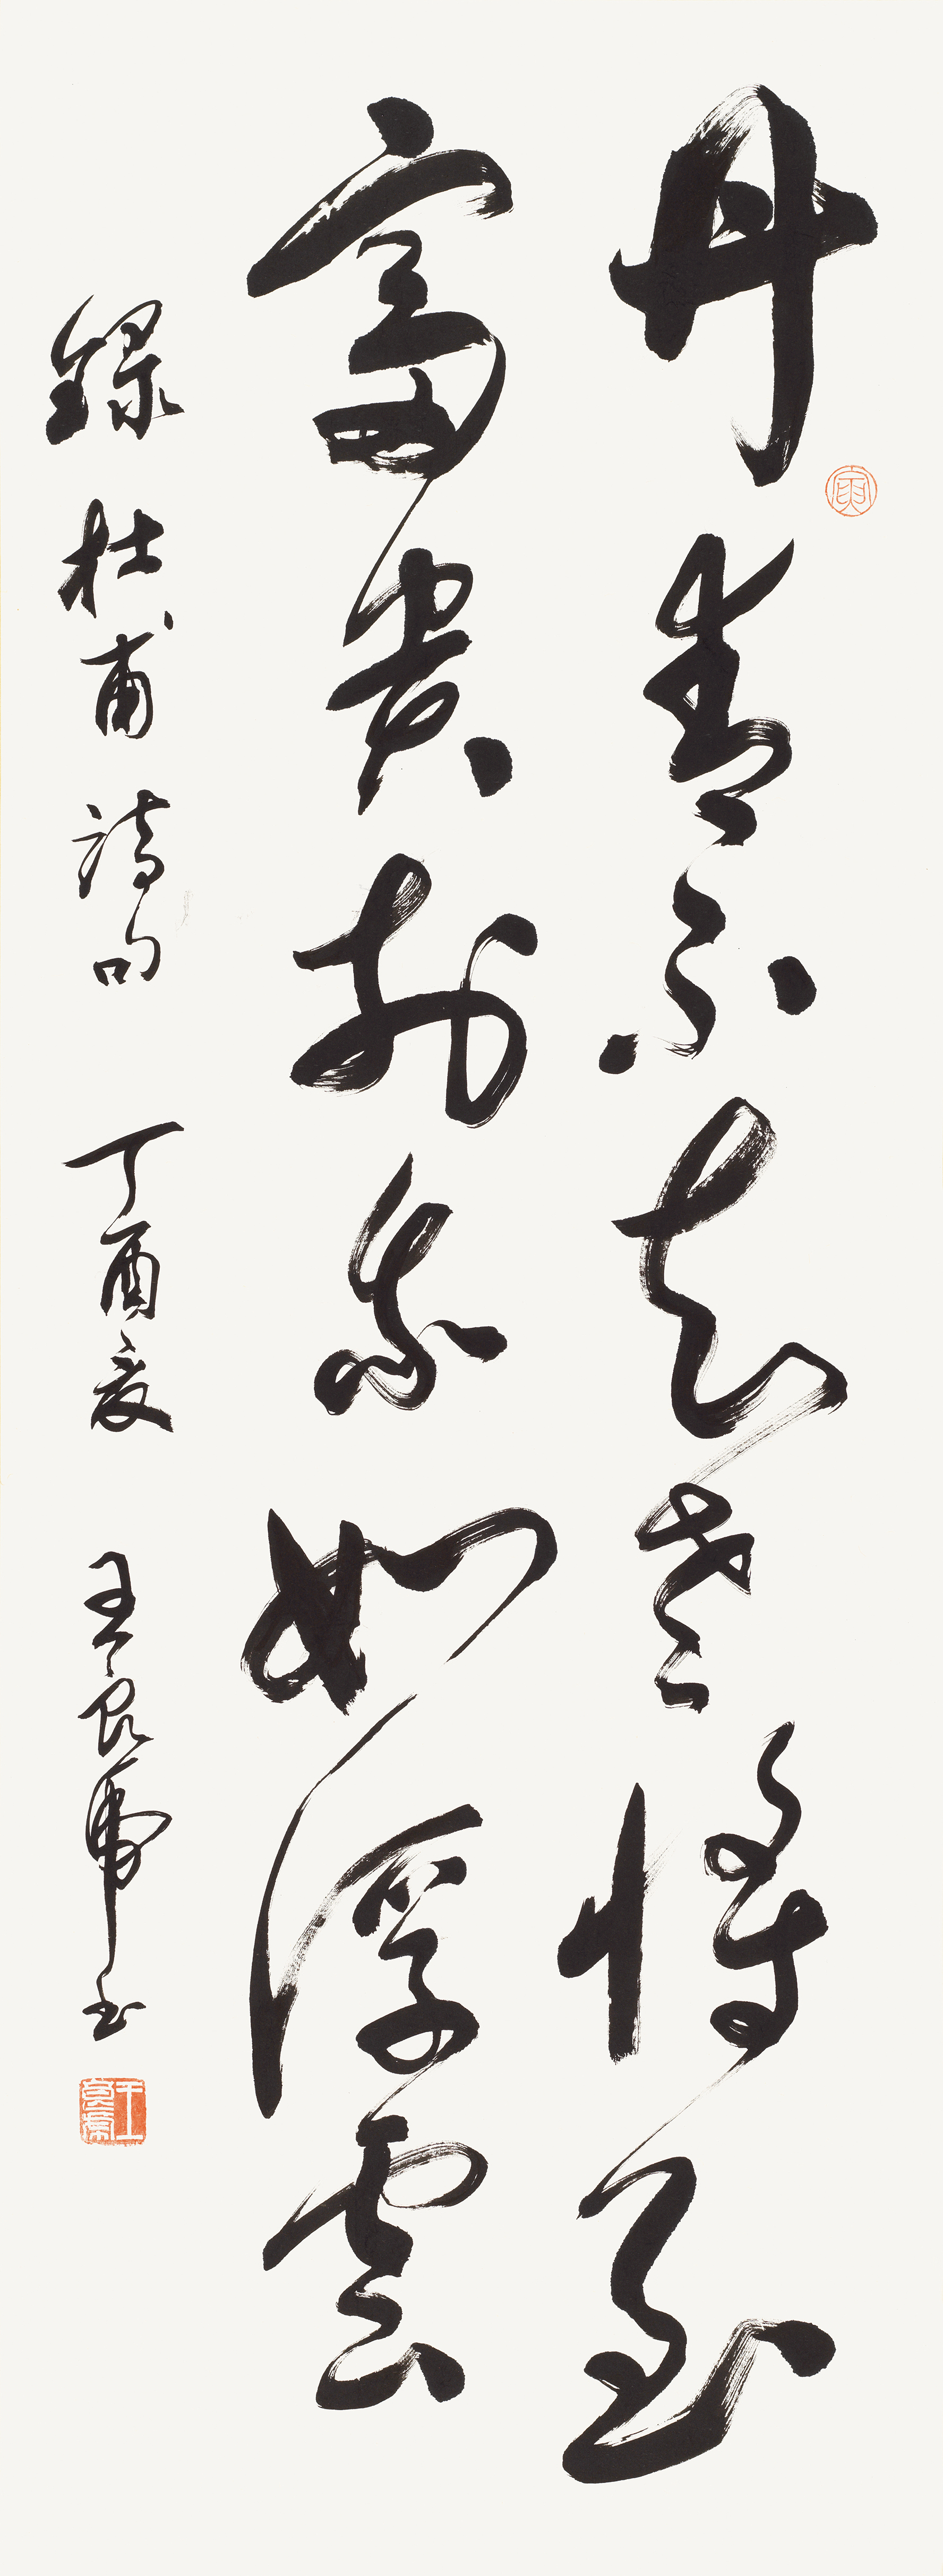 丹青不知老將至
富貴於我如浮雲
錄杜甫詩句 丁酉夏 王良虎書
寅
王良虎